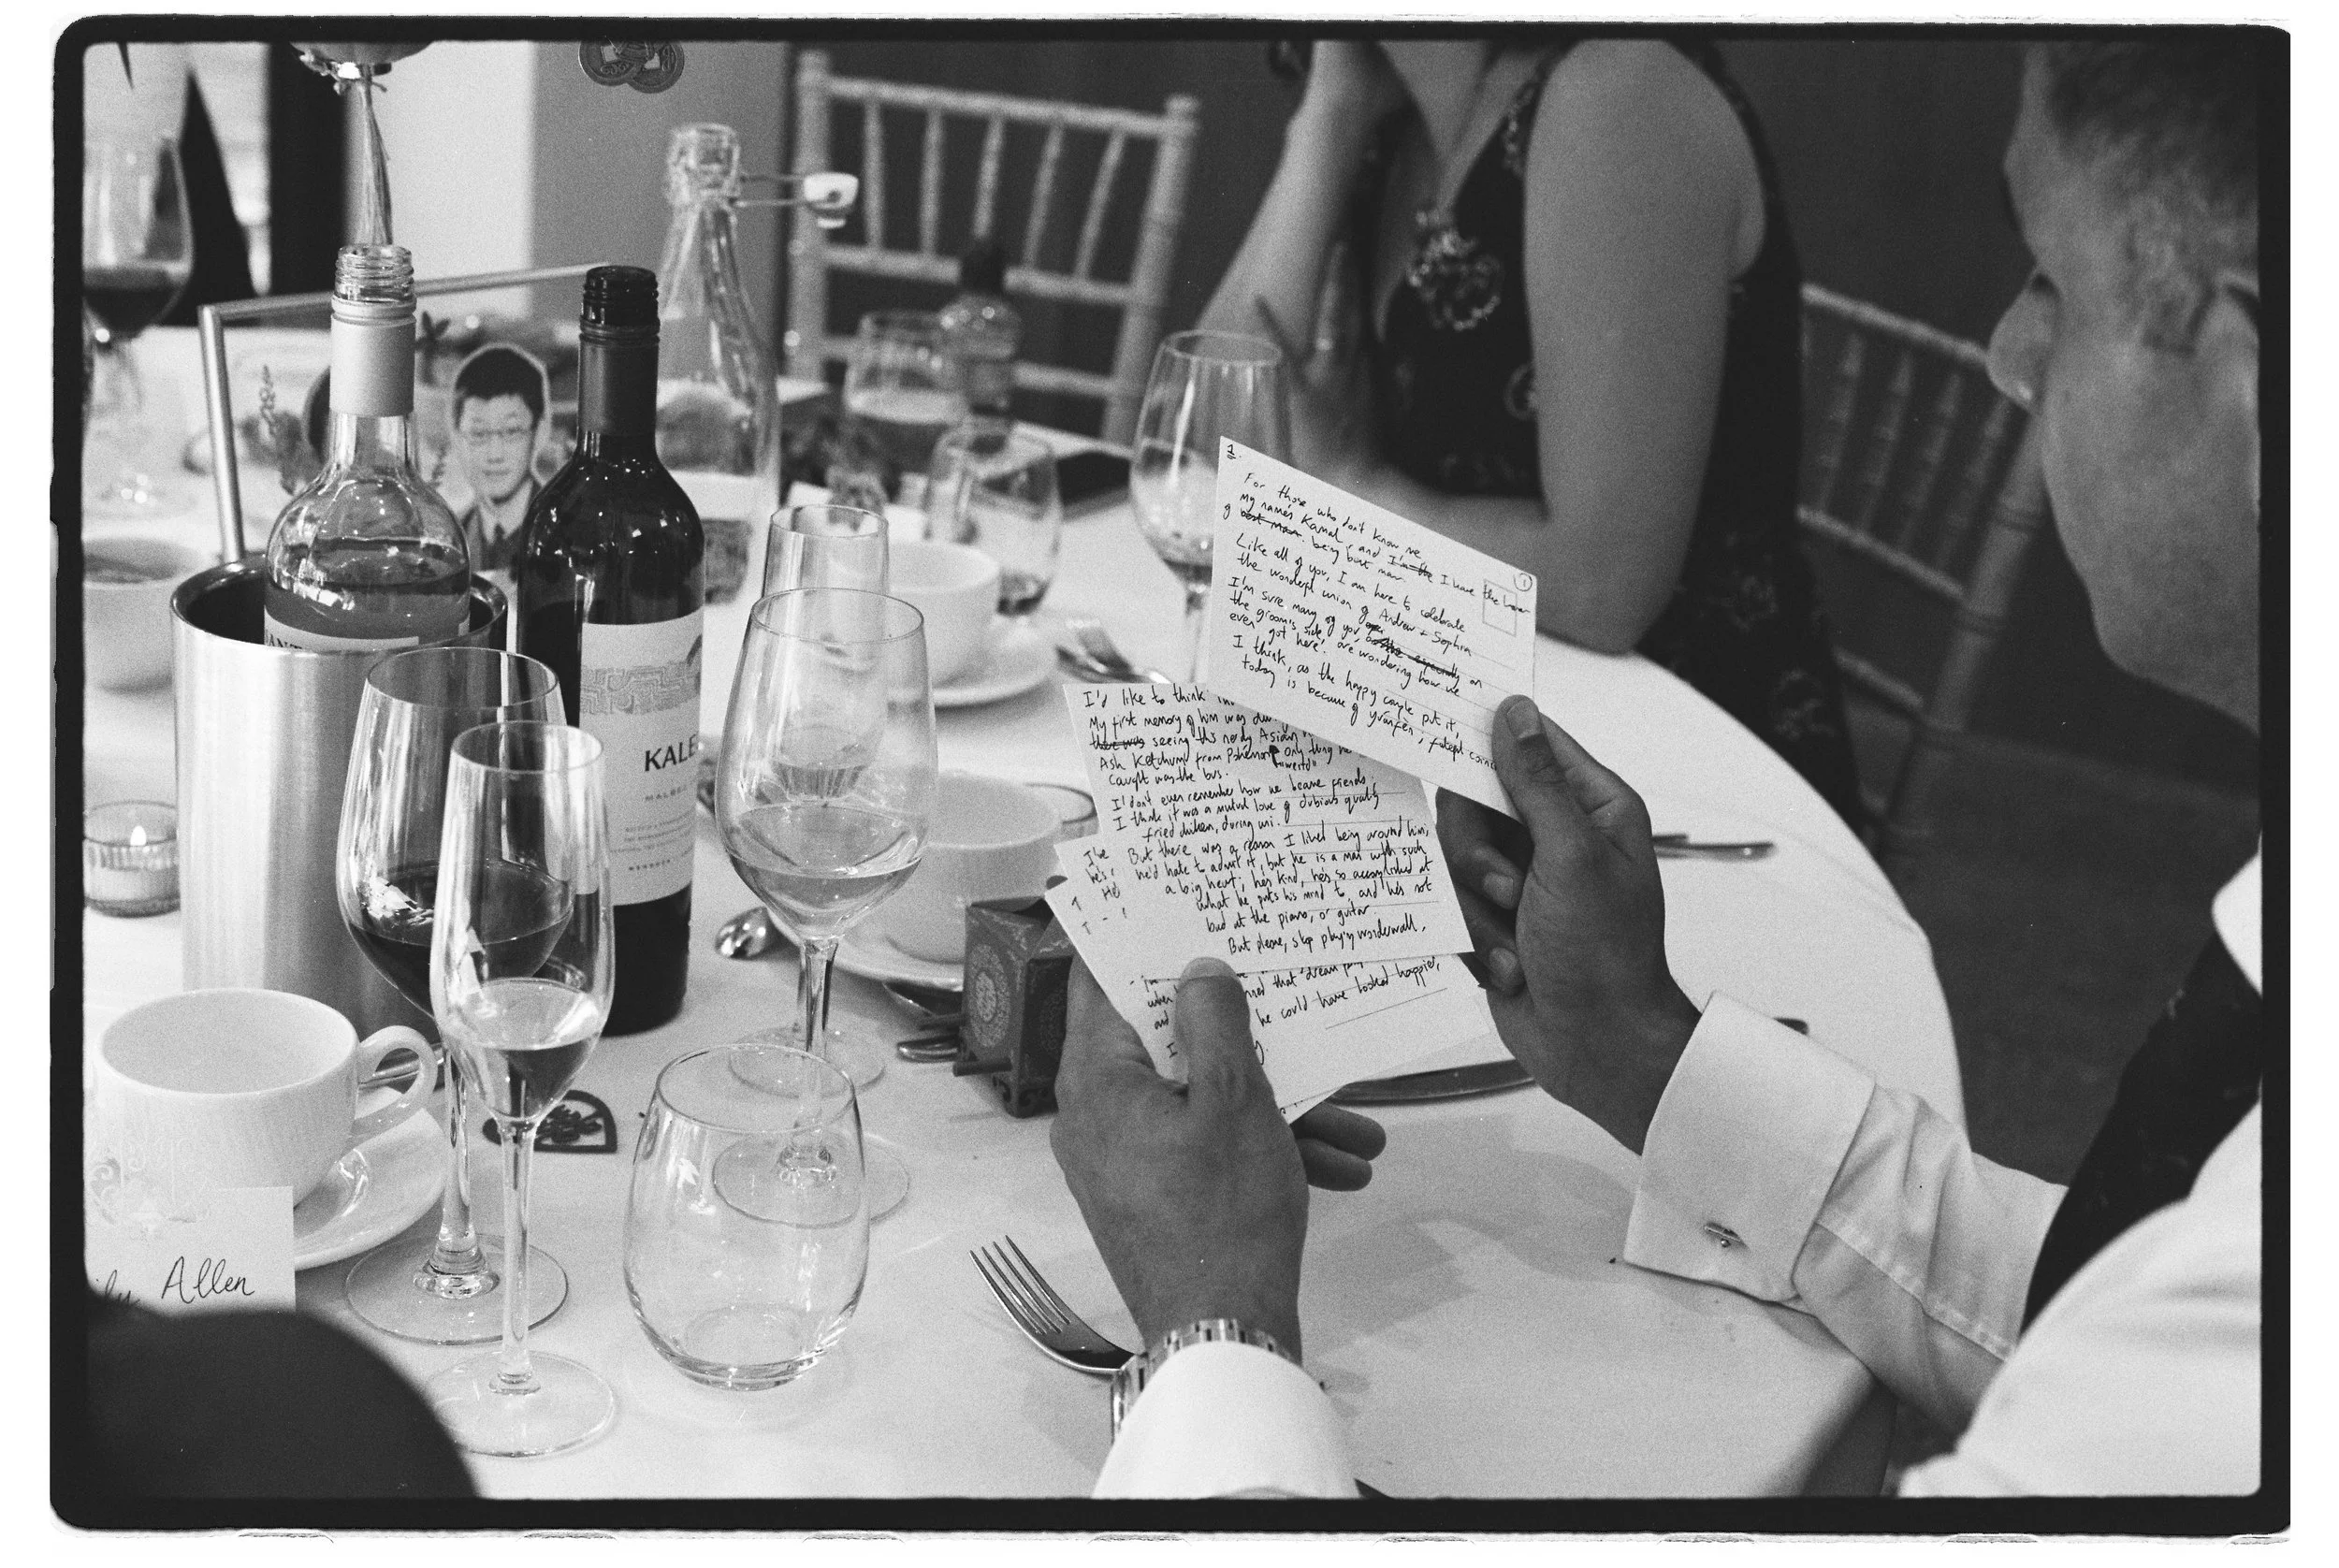 1.
1
For those who don't know me
My name's Kamal, and I'm the I have the honor
of best man. being best man.
Like all of you, I am here to celebrate
the wonderful union of Andrew + Sophia
I'm sure many of you, especially on
the groom's side, are wondering how we
even got here.
I think, as the happy couple put it,
today is because of yuanfen,
I'd like to think
My first memory of him was
there was seeing this nerdy Asian
Ash Ketchum from Pokémon, only thing he
caught was the bus.
I don't even remember how we became friends.
I think it was a mutual love of dubious quality
fried chicken, during uni.
But there was a reason I liked being around him,
he'd hate to admit it, but he is a man with such
a big heart; he's kind, he's so accomplished at
what he puts his mind to, and he's not
bad at the piano, or guitar.
But please, stop playing wonderwall.
I've
he's
that dream
when
and he could have looked happier,
I
KALE
MALBEC
MENDOZA
ANT
Allen